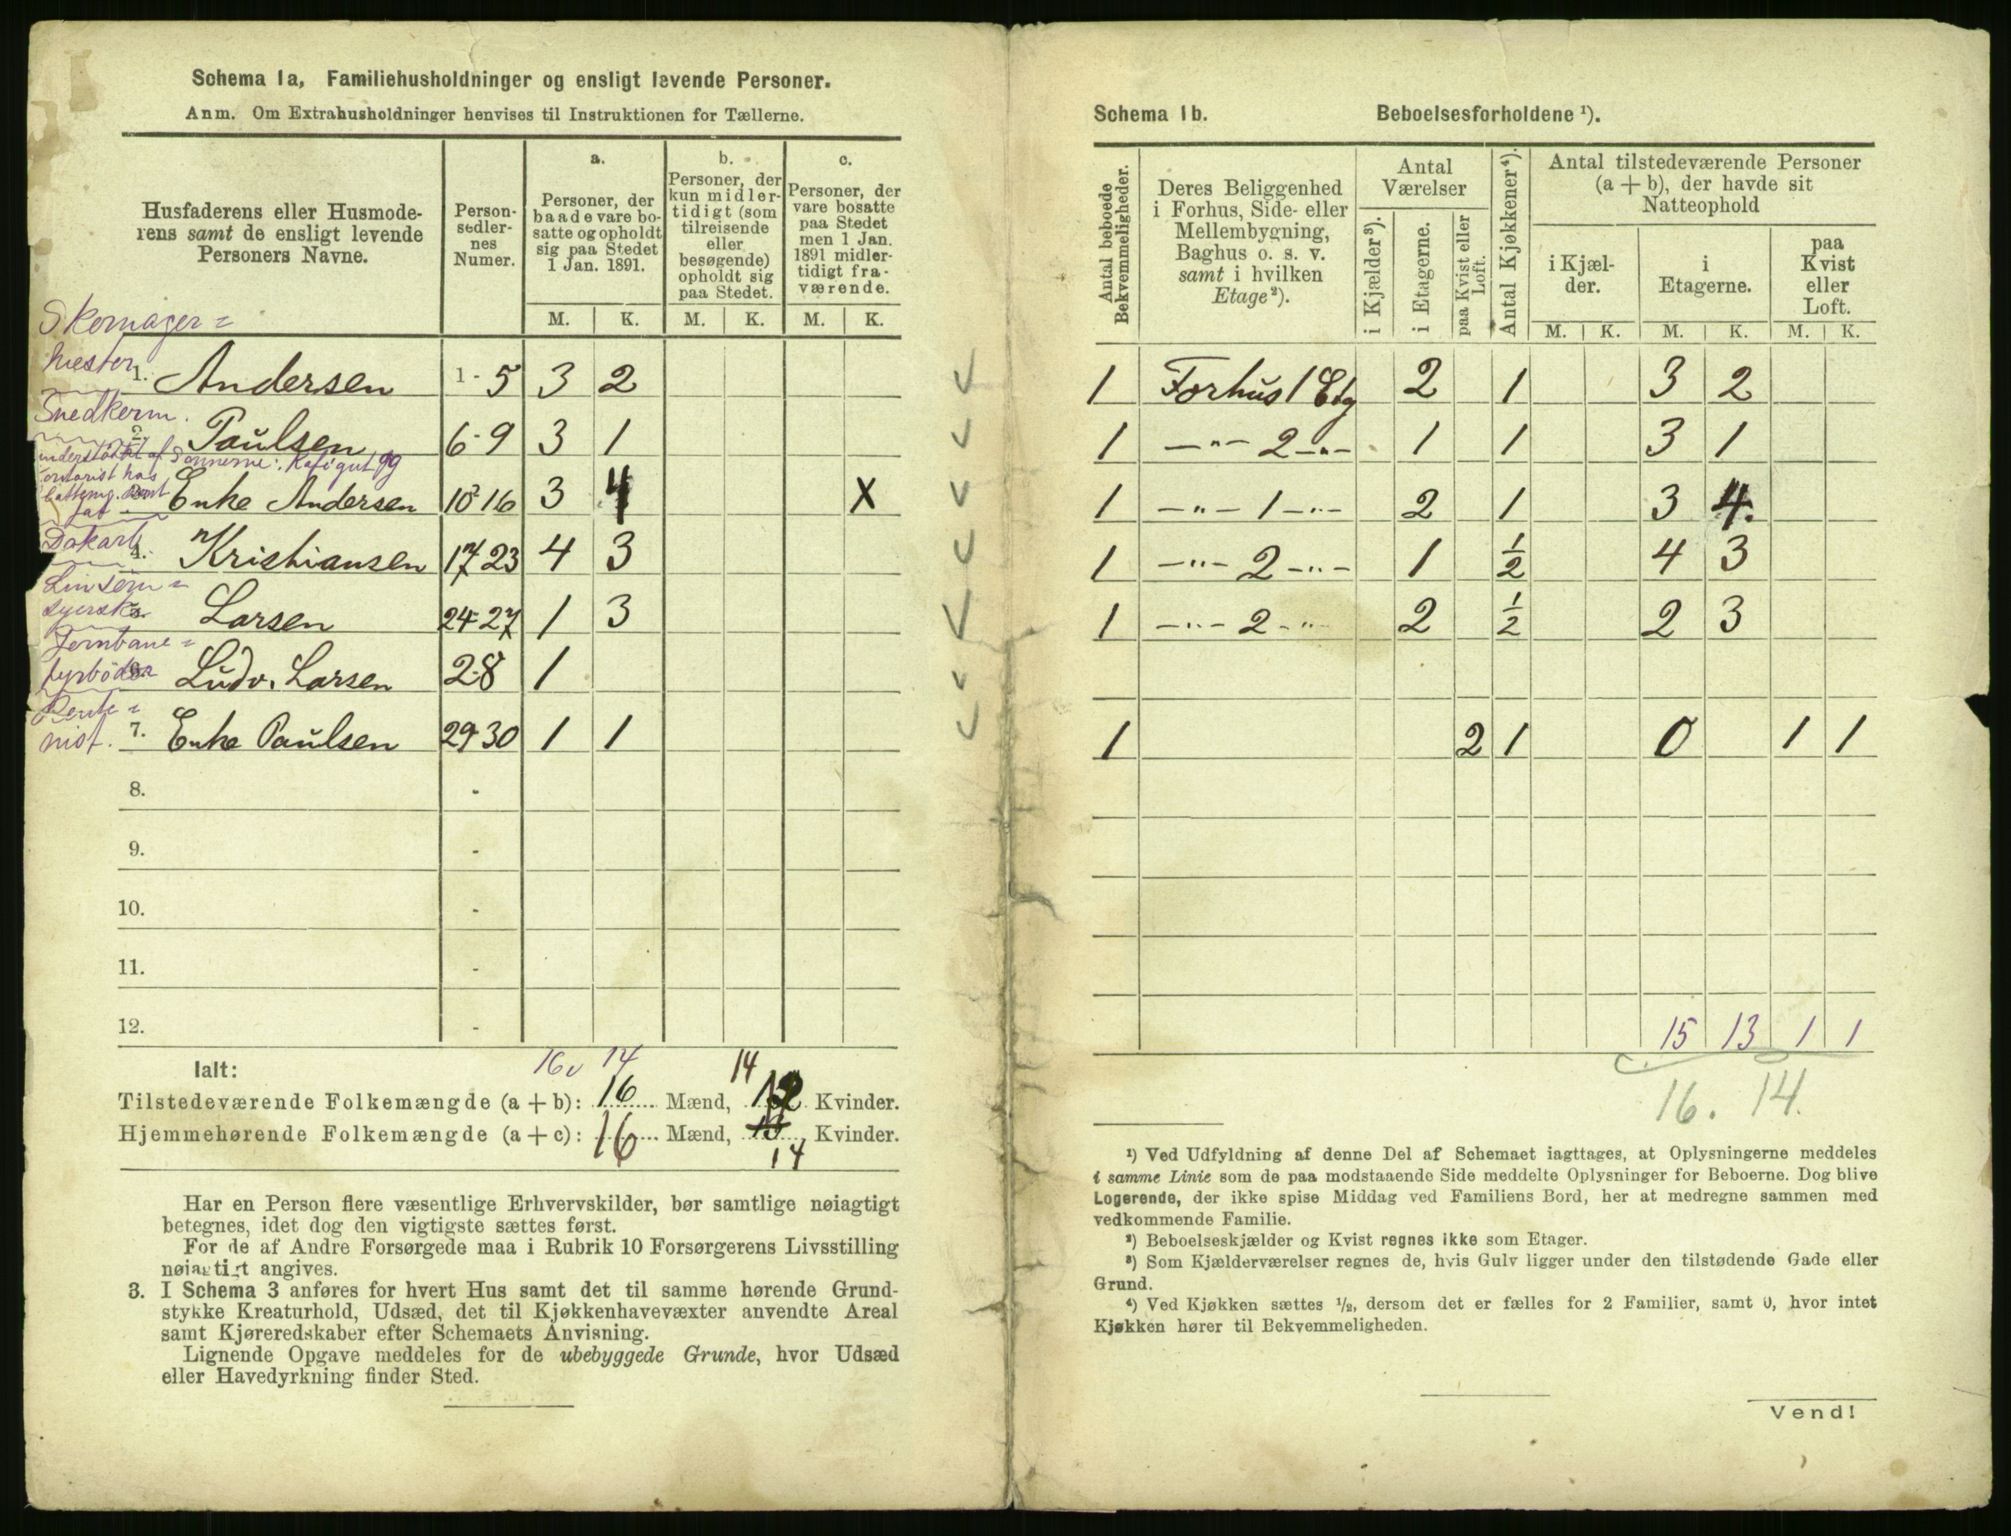 Schema 1a, Familiehusholdninger og ensligt levende Personer.
Anm. Om Extrahusholdninger henvises til Instruktionen for Tællerne.
Husfaderens eller Husmoderens samt de ensligt levende Personers Navne.
Personsedlernes Numer.
a. Personer, der baade vare bosatte og opholdt sig paa Stedet 1 Jan. 1891.
b. Personer, der kun midlertidigt (som tilreisende eller besøgende) opholdt sig paa Stedet.
c. Personer, der vare bosatte paa Stedet men 1 Jan. 1891 midlertidigt fraværende.
M. K. M. K. M. K.
Skomager=
mester
1. Andersen 1-5 3 2
Snedkerm.
2. Paulsen 6-9 3 1
understöttet af Sönnerne:
Enke Andersen 10-16 3 4 X
4. Kristiansen 17 23 4 3
Linsöm=
syerske
Larsen 24-27 1 3
Jernbane=
fyrböder
Ludv. Larsen 28 1
Rente=
nist.
7. Enke Paulsen 29-30 1 1
8. -
9. -
10. -
11. -
12. -
Ialt:
16 14 14
Tilstedeværende Folkemængde (a + b): 16 Mænd, 12 Kvinder.
Hjemmehørende Folkemængde (a + c): 16 Mænd, 13 Kvinder.
14
Har en Person flere væsentlige Erhvervskilder, bør samtlige nøiagtigt
betegnes, idet dog den vigtigste sættes først.
For de af Andre Forsørgede maa i Rubrik 10 Forsørgerens Livsstilling
nøiagtigt angives.
3. I Schema 3 anføres for hvert Hus samt det til samme hørende Grund-
stykke Kreaturhold, Udsæd, det til Kjøkkenhavevæxter anvendte Areal
samt Kjøreredskaber efter Schemaets Anvisning.
Lignende Opgave meddeles for de ubebyggede Grunde, hvor Udsæd
eller Havedyrkning finder Sted.
Schema 1b. Beboelsesforholdene ¹).
Antal beboede Bekvemmeligheder.
Deres Beliggenhed i Forhus, Side- eller Mellembygning, Baghus o. s. v. samt i hvilken Etage²).
Antal Værelser
i Kjælder³).
i Etagerne.
paa Kvist eller Loft.
Antal Kjøkkener⁴).
Antal tilstedeværende Personer (a + b), der havde sit Natteophold
i Kjælder.
i Etagerne.
paa Kvist eller Loft.
M. K. M. K. M. K.
1 Forhus 1 Etg 2 1 3 2
1 —"— 2 —"— 1 1 3 1
1 —"— 1 —"— 2 1 3 4.
1 —"— 2 —"— 1 ½ 4 3
1 —"— 2 —"— 2 ½ 2 3
1 2 1 0 1 1
15 13 1 1
16. 14.
¹) Ved Udfyldning af denne Del af Schemaet iagttages, at Oplysningerne meddeles
i samme Linie som de paa modstaaende Side meddelte Oplysninger for Beboerne. Dog blive
Logerende, der ikke spise Middag ved Familiens Bord, her at medregne sammen med
vedkommende Familie.
²) Beboelseskjælder og Kvist regnes ikke som Etager.
³) Som Kjælderværelser regnes de, hvis Gulv ligger under den tilstødende Gade eller
Grund.
⁴) Ved Kjøkken sættes ½, dersom det er fælles for 2 Familier, samt 0, hvor intet
Kjøkken hører til Bekvemmeligheden.
Vend!